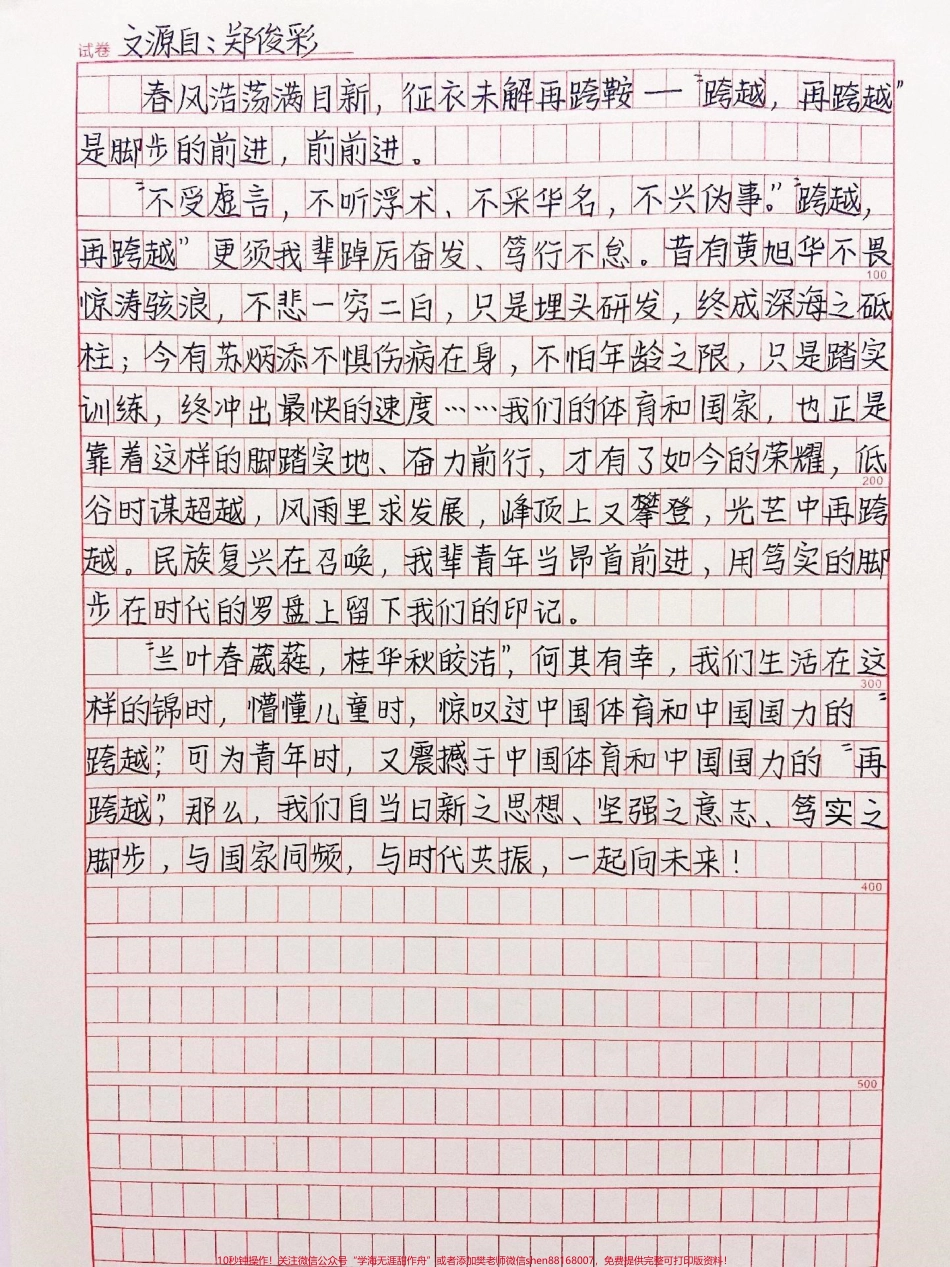 试卷 文源自：郑俊彩
春风浩荡满目新，征衣未解再跨鞍—“跨越，再跨越”
是脚步的前进，前前进。
“不受虚言，不听浮术、不采华名，不兴伪事。”“跨越，
再跨越”更须我辈踔厉奋发、笃行不怠。昔有黄旭华不畏
100
惊涛骇浪，不悲一穷二白，只是埋头研发，终成深海之砥
柱；今有苏炳添不惧伤病在身，不怕年龄之限，只是踏实
训练，终冲出最快的速度……我们的体育和国家，也正是
靠着这样的脚踏实地、奋力前行，才有了如今的荣耀，低
200
谷时谋超越，风雨里求发展，峰顶上又攀登，光芒中再跨
越。民族复兴在召唤，我辈青年当昂首前进，用笃实的脚
步在时代的罗盘上留下我们的印记。
“兰叶春葳蕤，桂华秋皎洁”，何其有幸，我们生活在这
300
样的锦时，懵懂儿童时，惊叹过中国体育和中国国力的“
跨越”；可为青年时，又震撼于中国体育和中国国力的“再
跨越”，那么，我们自当日新之思想、坚强之意志、笃实之
脚步，与国家同频，与时代共振，一起向未来！
400
500
10秒钟操作！关注微信公众号“学海无涯甜作舟”或者添加樊老师微信shen88168007，免费提供完整可打印版资料！